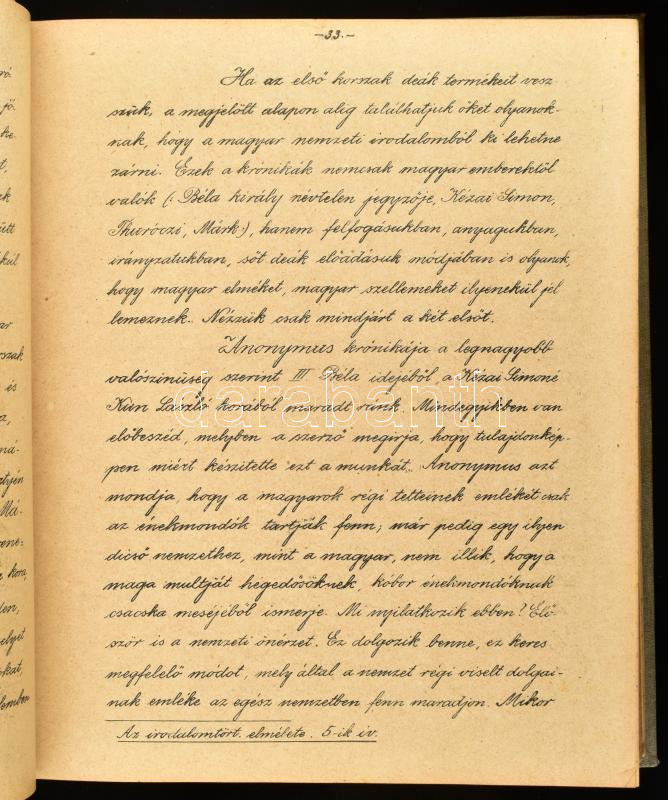 -33.-
Ha az első korszak deák termékeit vesz-
szük, a megjelölt alapon alig találhatjuk őket olyanok-
nak, hogy a magyar nemzeti irodalomból ki lehetne
zárni. Ezek a krónikák nemcsak magyar emberektől
valók (: Béla király névtelen jegyzője, Kézai Simon,
Thuróczi, Márk:), hanem felfogásukban, anyagukban,
irányzatukban, sőt deák előadásuk módjában is olyanok,
hogy magyar elméket, magyar szellemeket ilyenekül jel
lemeznek. Nézzük csak mindjárt a két elsőt.
Anonymus krónikája a legnagyobb
valószinűség szerint III Béla idejéből, a Kézai Simoné
Kún László korából maradt ránk. Mindegyikben van
előbeszéd, melyben a szerző megirja, hogy tulajdonkép-
pen miért készitette ezt a munkát. Anonymus azt
mondja, hogy a magyarok régi tetteinek emlékét csak
az énekmondók tartják fenn; már pedig egy ilyen
dicső nemzethez, mint a magyar, nem illik, hogy a
maga multját hegedősöknek, kóbor énekmondóknak
csacska meséjéből ismerje. Mi nyilatkozik ebben? Elő-
ször is a nemzeti önérzet. Ez dolgozik benne, ez keres
megfelelő módot, mely által a nemzet régi viselt dolgai-
nak emléke az egész nemzetben fenn maradjon. Mikor
Az irodalomtört. elmélete. 5-ik ív.
darabanth